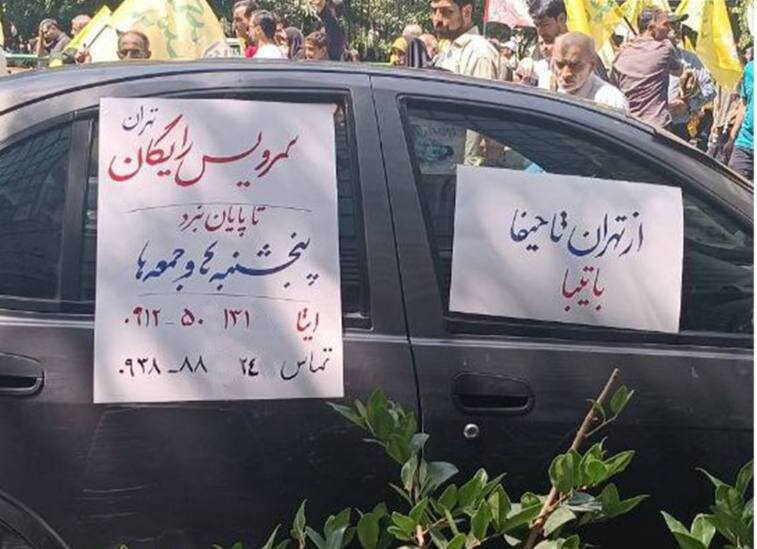 تهران
سرویس رایگان
تا پایان نبرد
پنجشنبه ها و جمعه ها
ایتا ۱۳۱ ۵۰ - ۰۹۱۲
تماس ۲۴ ۸۸ - ۰۹۳۸
از تهران تا حیفا
با تیبا